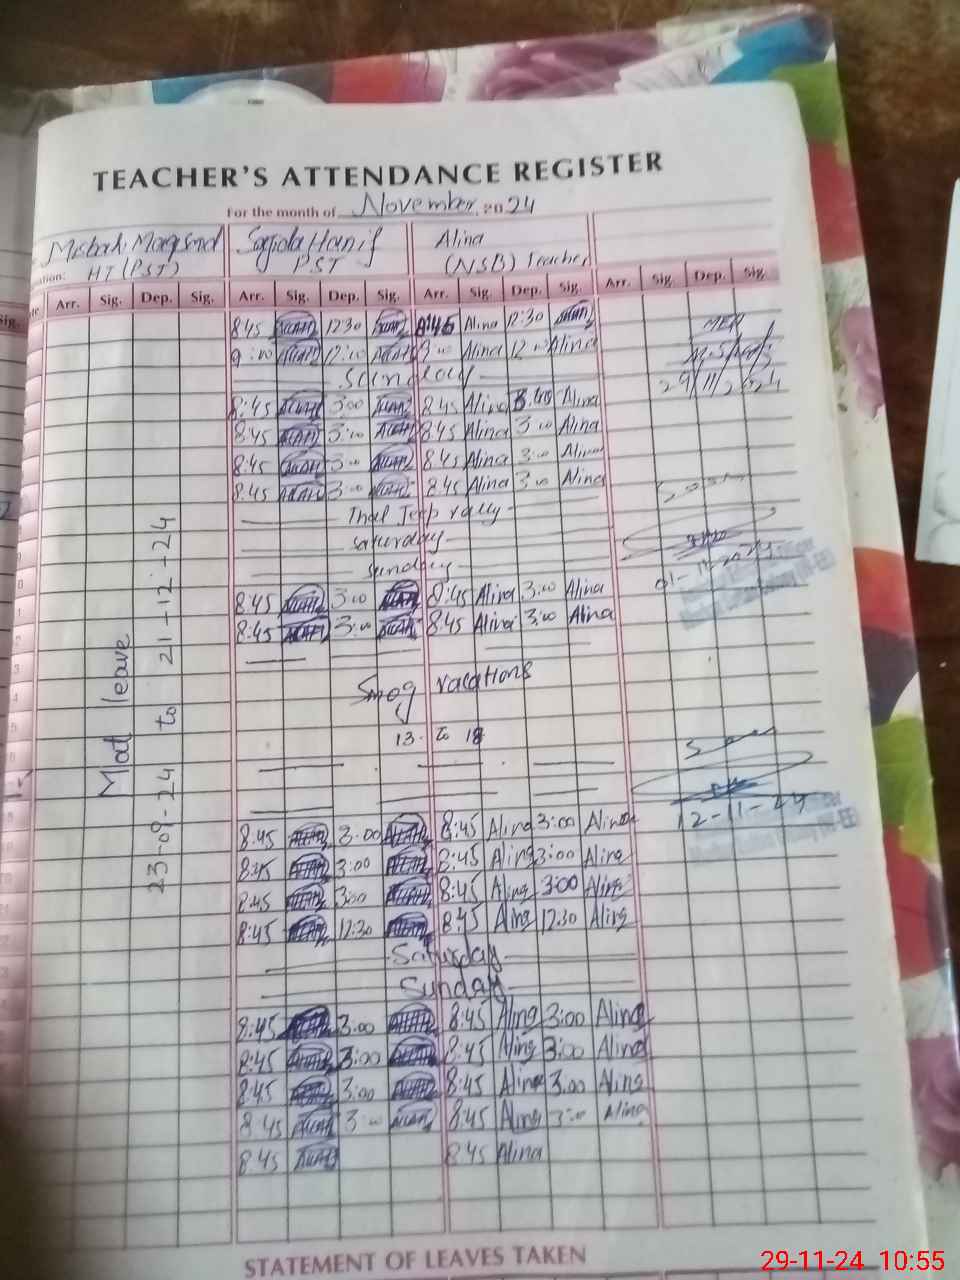 TEACHER'S ATTENDANCE REGISTER
For the month of November, 2024
Misbah Maqsood Sajida Hanif Alina
HT (PST) PST (NSB) Teacher
Arr. Sig. Dep. Sig. Arr. Sig. Dep. Sig. Arr. Sig. Dep. Sig. Arr. Sig. Dep. Sig.
8:45 12:30 8:45 Alina 12:30
9:00 12:00 9:00 Alina 12:00 Alina
Sunday
29/11/2024
8:45 3:00 8:45 Alina Alina
8:45 3:00 8:45 Alina 3:00 Alina
8:45 3:00 8:45 Alina 3:00 Alina
8:45 3:00 8:45 Alina 3:00 Alina
Thal Jeep rally
Saturday
Sunday
8:45 3:00 8:45 Alina 3:00 Alina
8:45 3:00 8:45 Alina 3:00 Alina
Mat leave
23-09-24 to 21-12-24
Smog vacations
13 to 18
12-11-24
8:45 3:00 8:45 Alina 3:00 Alina
8:45 3:00 8:45 Alina 3:00 Alina
8:45 3:00 8:45 Alina 3:00 Alina
8:45 12:30 8:45 Alina 12:30 Alina
Saturday
Sunday
8:45 3:00 8:45 Alina 3:00 Alina
8:45 3:00 8:45 Alina 3:00 Alina
8:45 3:00 8:45 Alina 3:00 Alina
8:45 3:00 8:45 Alina 3:00 Alina
8:45 8:45 Alina
STATEMENT OF LEAVES TAKEN
29-11-24 10:55